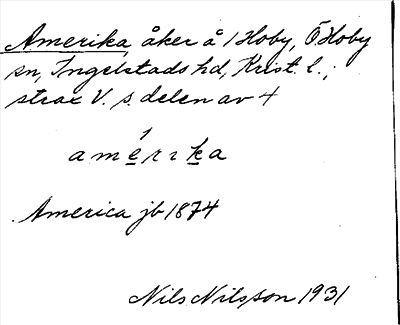 Amerika, åker å 1 Hoby, Ö Hoby
sn, Ingelstads hd, Krist. l.;
strax V. s. delen av 4
amerika
America jb 1874
Nils Nilsson 1931